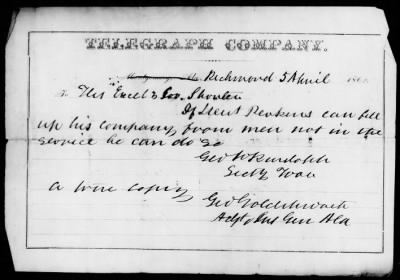 TELEGRAPH COMPANY.
Richmond 5 April 186
To His Excel'y Gov. Shorter
If Lieut Perkins can fill
up his company from men not in the
service he can do so
Geo W Randolph
Secty War
a true copy
Geo Goldthwaite
Adjt & Ins Gen Ala